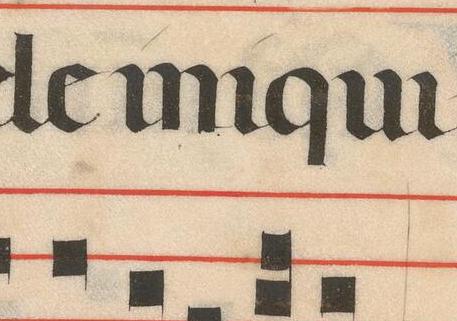 de iniqui